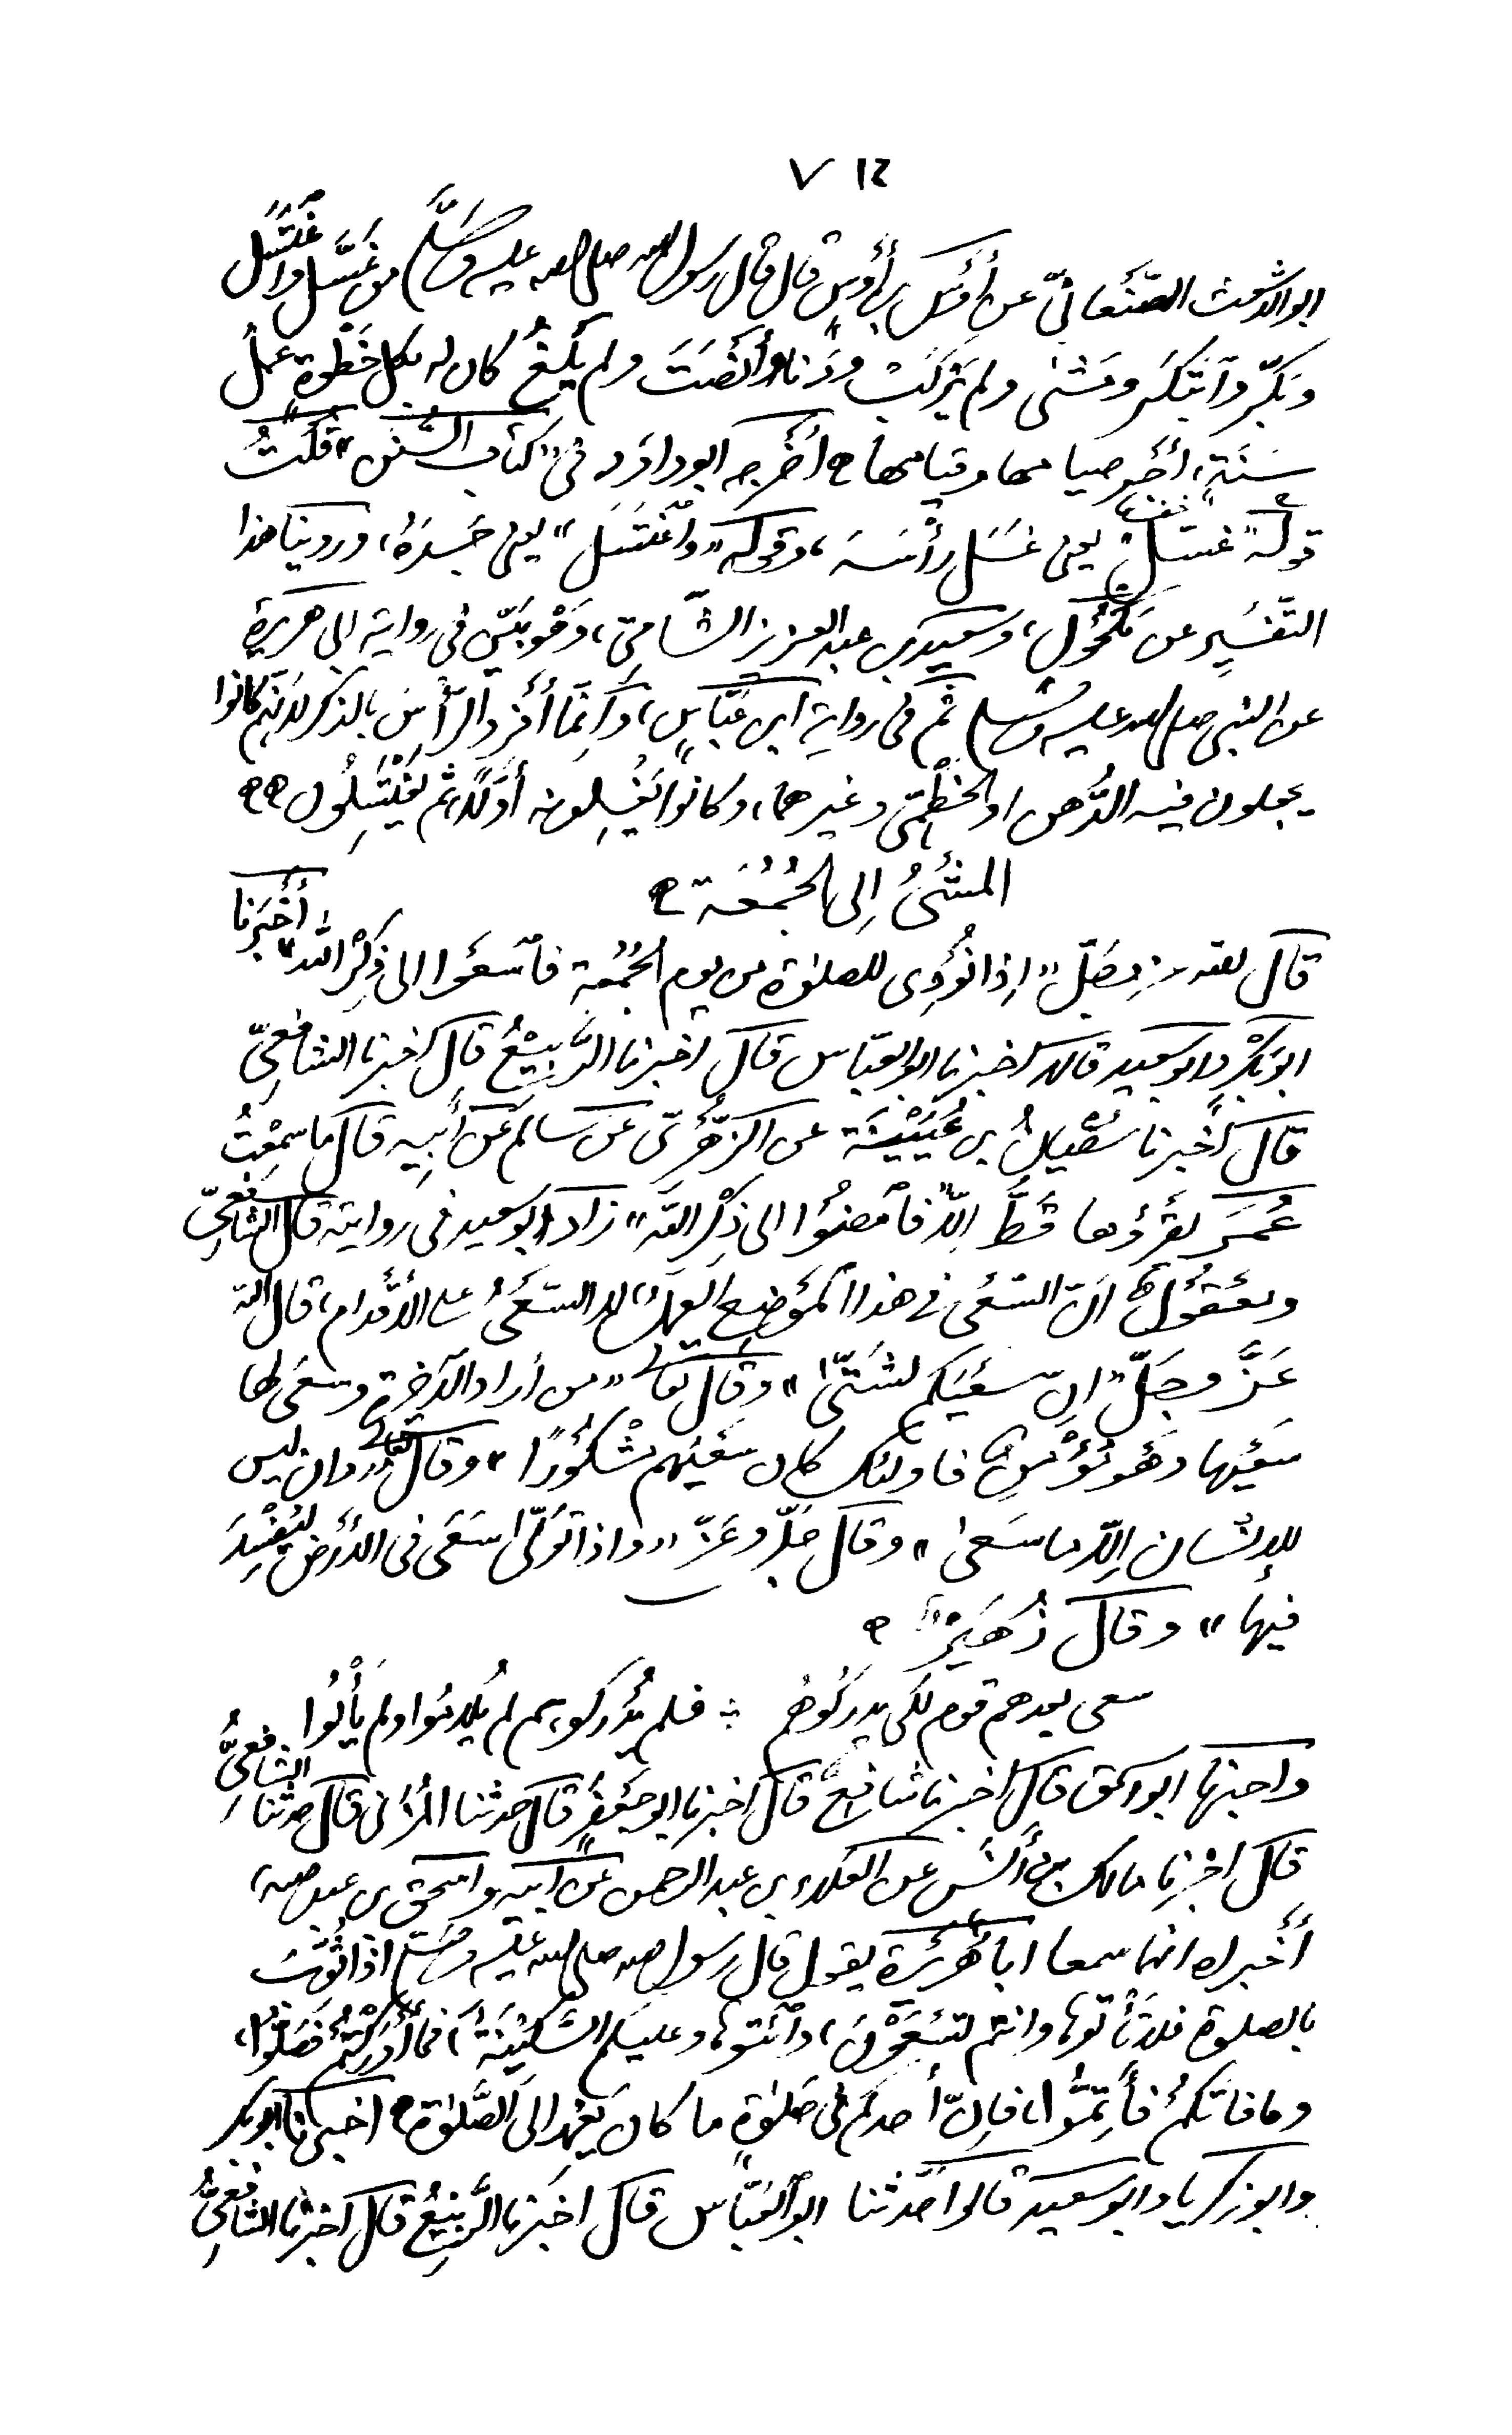 ٧١٤
ابو الاشعث الصَّنْعانيّ عن أَوْس بن أَوْسٍ قال قال رسول الله صلى الله عليه وسَلَّم من غَسَّل واغْتَسَل
وبَكَّرَ وآبْتَكَرَ ومَشٰى ولم يَرْكَبْ ودَنا وأَنْصَتَ ولم يَلْغُ كان له بكل خَطْوةٍ عملُ
سَنَةٍ، أَجْر صيامها وقيامها ٥ أَخْرجه ابو داؤد فى "كتاب السُّنَن" قُلْتُ
قوله "غسل" يعنى غَسَلَ رأْسَهُ، وقوله "واغْتَسَلَ" يعنى جَسَدَهُ، وروينا هذا
التَّفْسِير عن مَكْحُول، وسَعِيد بن عبد العزيز الشَّامىّ، وَهْوَ بَيّن فى رواية ابى هريرة
عن النبى صلى الله عليه وسلم ثم فى رواية ابن عَبَّاسٍ، وَإنَّما أُفْرِدَ الرَّأْسُ بالذكر لانَّهم كانوا
يجعلون فيه الدُّهن او الخِطْمِىّ وغيرهما، وكانُوا يَغْسِلونه أَوَّلاً، ثم يَغْتَسِلُون ٥٥
المَشْىُ إِلى الجُمُعَة ٥
قال الله عز وجَلّ "إِذا نُوْدِى للصلوٰة من يوم الجُمُعَةِ فآسْعَوا الى ذِكْرِ اللّٰه" أَخْبَرَنا
ابو بَكْر وابو سعيد قالا اخبرنا ابو العبّاس قال اخبرنا الرَّبِيْعُ قال اخبرنا الشافعىّ
قال أخبرنا سُفْيانُ بن عُيَيْنَة عن الزُّهْرىّ عن سالم عَن أَبِيه قال ما سَمِعْتُ
عُمَر يقرؤها قَطَّ إلّا "فآمْضُوْا الى ذِكْرِ اللّٰه" زاد ابو سعيد فى روايته قال الشّافعىّ
ومعقُوْل أنّ السَّعْى فى هذا المَوْضِع العمل، لا السَّعْىُ على الأَقْدام، قال اللّٰه
عَزَّ وجَلّ "ان سَعْيَكم لشَتّى" وقال تعالى "من أراد الآخرة وسعَى لها
سَعْيَها وهُوَ مُؤْمِنٌ فاولئك كان سَعْيُهم مَشْكُوْرًا" وقال تعالى "وان ليس
للإنْسان إلّا ما سَعىٰ" وقال جَلّ وعَزّ "واذا تَوَلّى سَعَى فى الاَرْض ليُفْسِدَ
فيها" وقال زُهَيْرٌ ٥
سعى بعدهم قوم لكى يدركُوهُم ؞ فلم يُدْركوهم لم يُلامُوا ولم يأْلُوا
واخبرنا ابو اسحق قال اخبرنا شافِعٌ قال اخبرنا ابو جَعْفَرٍ قال حدثنا المُزَنى قال حدثنا الشافعىُّ
قال اخْبرنا مالك بن أَنَس عن العَلاء بن عبد الرحمن عَن أبيه واسحٰق بن عبد الله،
أَخْبراه انهما سمعا ابا هُرَيْرَة يقول قال رسول الله صلى الله عليه وسلّم اذا ثُوِّبَ
بالصلوة فلا تَأْتوها وانتم تَسْعَوْنَ، وآئْتوها وعليكم السَّكِيْنَةُ، فما أَدْرَكْتُمْ فَصَلُّوا،
وما فاتكمْ فَأَتِمُّوا، فإنّ أَحدكم فى صَلٰوة ما كان يَعْمِد إلى الصَّلٰوة ٥ اخبرنا ابو بكر
وابو زكريا وابو سعيد قالوا حَدَّثنا ابو العَبّاس قال اخبَرنا الرَّبِيْعُ قال اخبَرنا الشافعىُّ